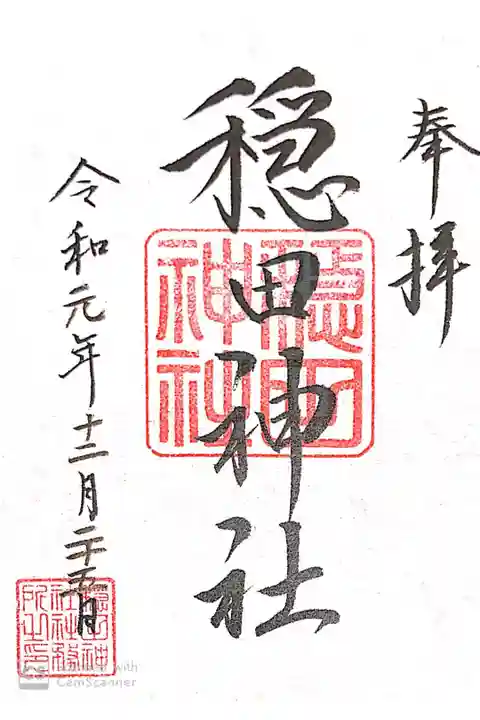 奉拝
穏田神社
穏田神社
令和元年十二月二十五日
穏田神
社社務
所之印
Scanned with
CamScanner